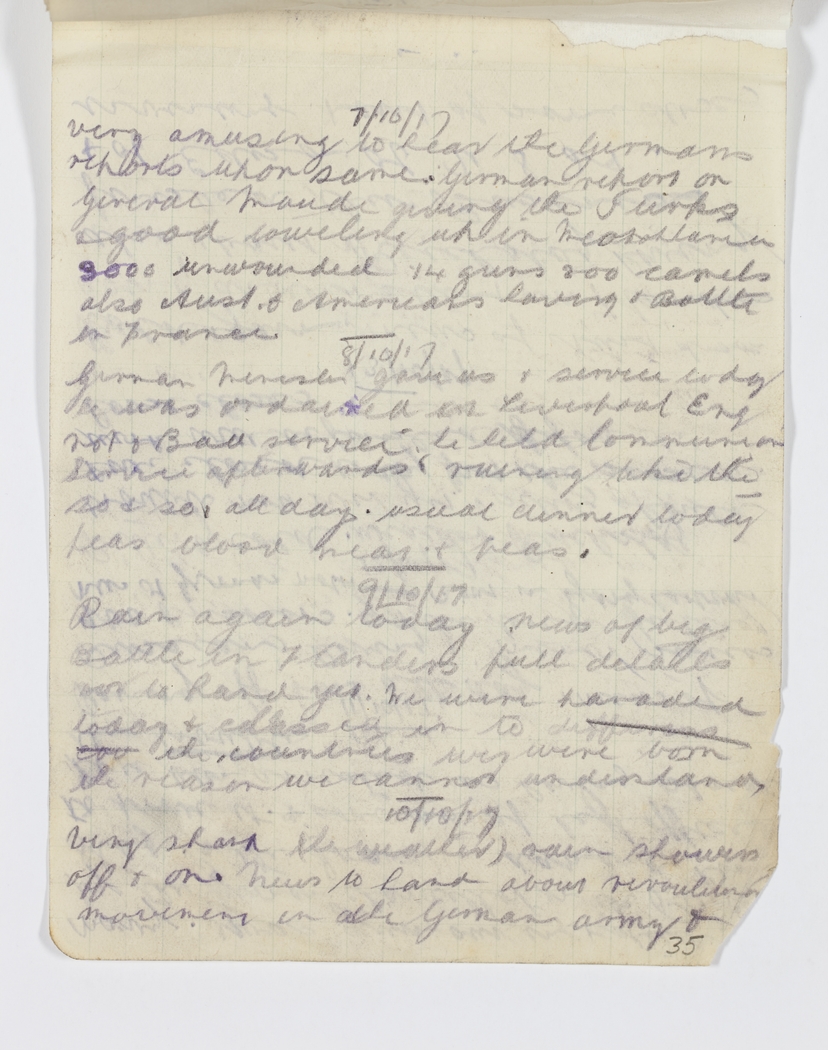 7/10/17
very amusing to hear the Germans
reports upon same. German report on
General Maude giving the Turks
a good toweling up in Mesopotamia
3000 unwounded 14 guns 200 camels
also Aust. & Americans having a Battle
in France.
8/10/17
German Minister gave us a service today
he was ordained in Liverpool Eng
not a Bad service. he held Communion
Service afterwards raining like the
so & so, all day. usual dinner today
peas blood meat & peas.
9/10/17
Rain again today news of big
Battle in Flanders full details
not to hand yet. We were paraded
today & classed in to
the countries we were born
the reason we cannot understand,
10/10/17
Very sharp (the weather) rain showers
off & on. News to hand about
movement in the German army &
35